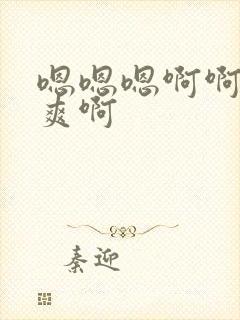 嗯嗯嗯啊啊
爽啊
秦迎